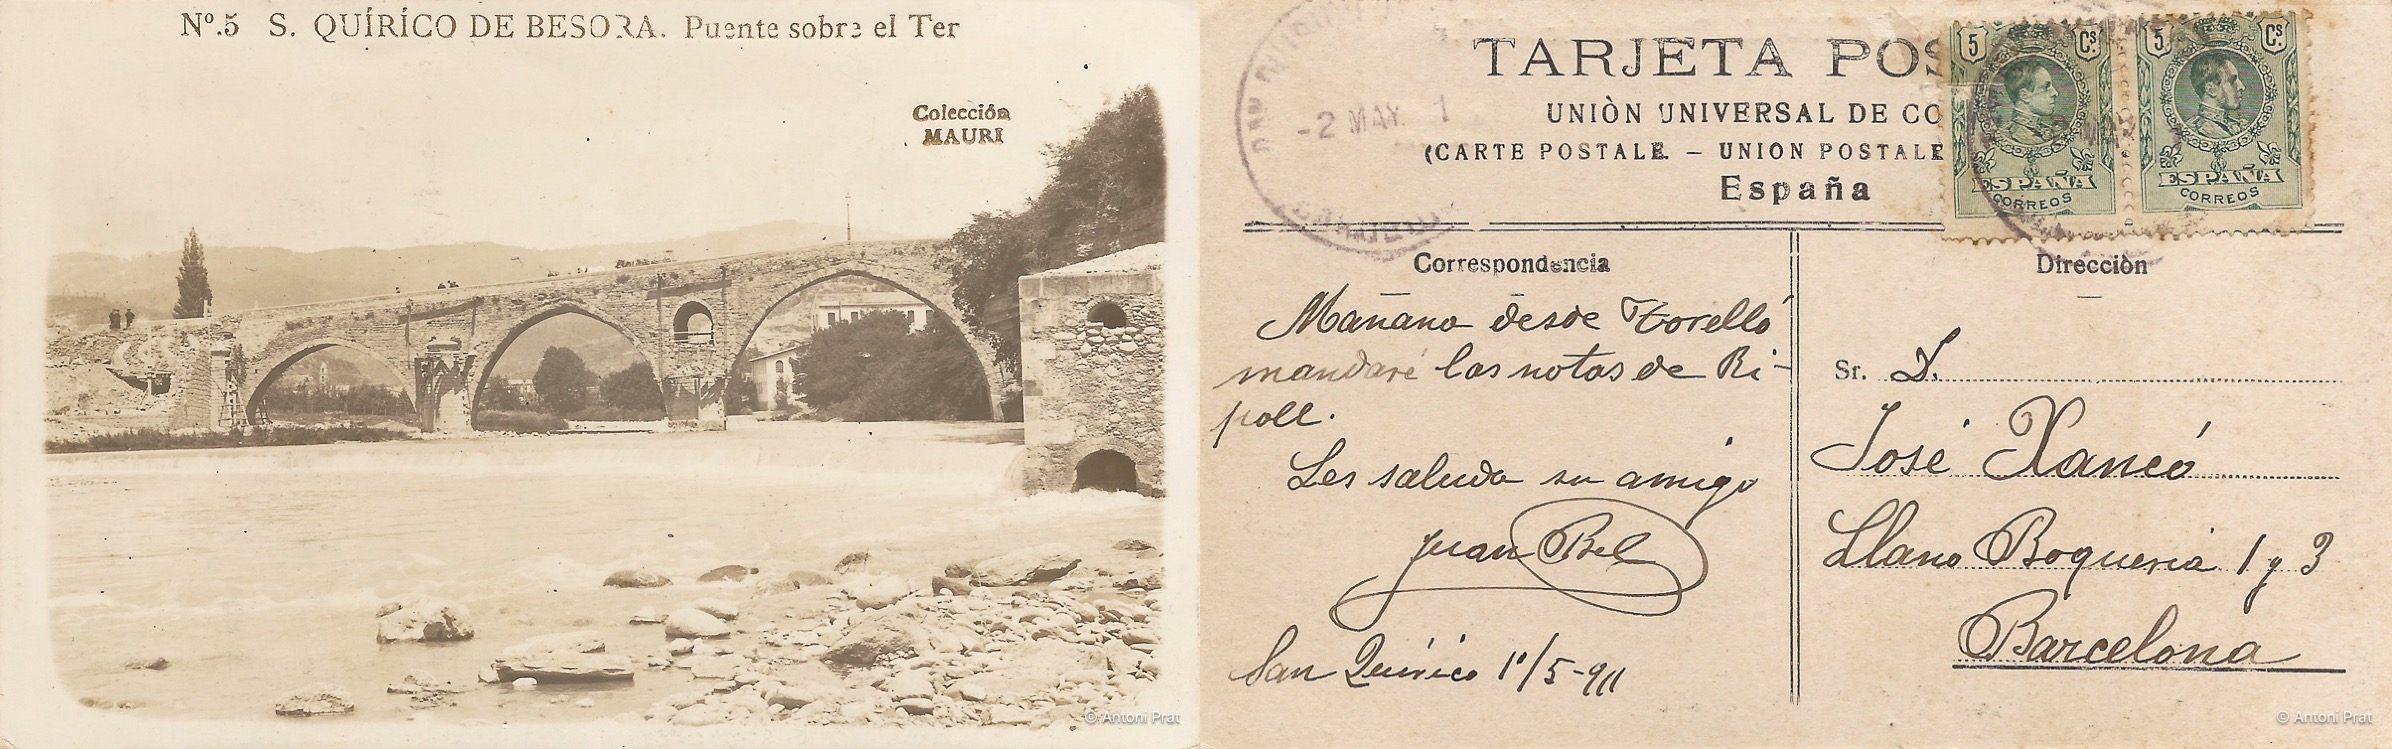 Nº.5 S. QUÍRÍCO DE BESORA. Puente sobre el Ter
Colección
MAURI
© Antoni Prat
TARJETA POS
UNIÒN UNIVERSAL DE CO
(CARTE POSTALE. — UNION POSTALE
España
5 Cs.
ESPAÑA
CORREOS
5 Cs.
ESPAÑA
CORREOS
-2 MAY. 1
Correspondencia
Mañana desde Torelló
mandaré las notas de Ri-
poll.
Les saluda su amigo
Juan Bel
San Quírico 1º/5-911
Direcciòn
Sr. D.
José Xancó
Llano Boqueria 1 y 3
Barcelona
© Antoni Prat